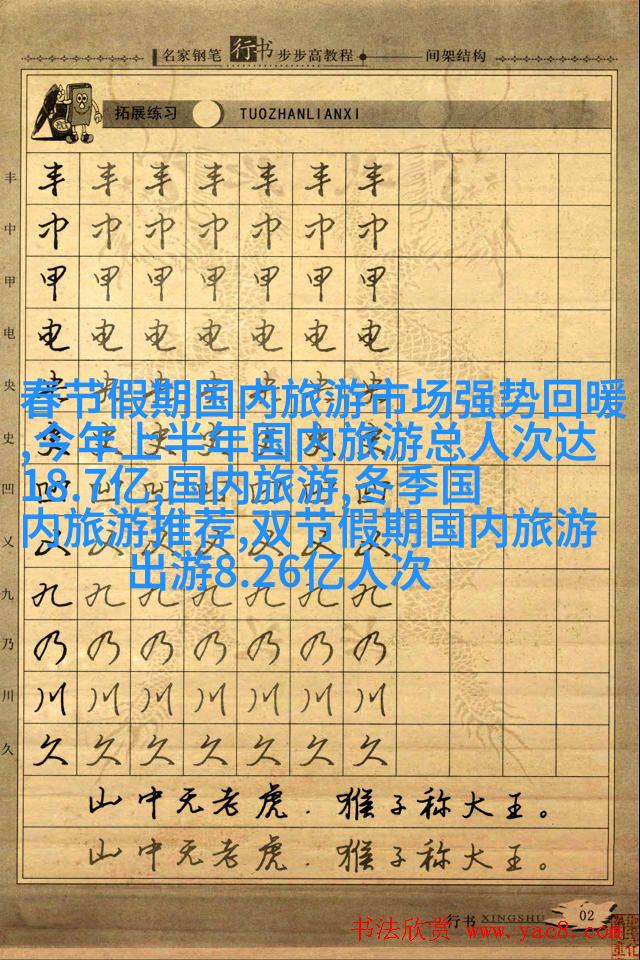 名家钢笔行书步步高教程 间架结构
拓展练习 TUOZHANLIANXI
丰 丰 丰 丰 丰 丰 丰 丰
中 中 中 中 中 中 中 中
甲 甲 甲 甲 甲 甲 甲 甲
电 电 电 电 电 电 电 电
央 央 央 央 央 央 央 央
春节假期国内旅游市场强势回暖
史 史 史 史 史 史 史 史
,今年上半年国内旅游总人次达
凹 凹 凹 凹 凹 凹 凹 凹
18.7亿,国内旅游,各季国
内旅游推荐,双节假期国内旅游
义 义 义 义 义 义 义 义
出游8.26亿人次
九 九 九 九 九 九 九 九
乃 乃 乃 乃 乃 乃 乃 乃
川 川 川 川 川 川 川 川
久 久 久 久 久 久 久 久
山中无老虎.猴子称大王。
山中无老虎.猴子称大王。
行书 XINGSHU 02
书法欣赏 www.yac8.com